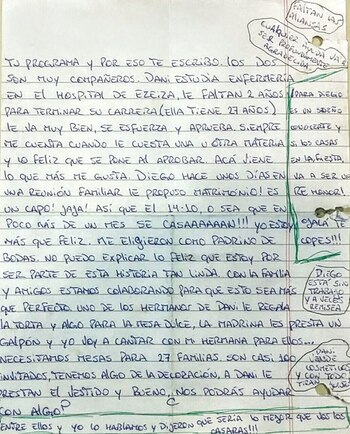 FALTAN LAS
ALIANZAS
CUALQUIER AYUDA VA A
SER PROFUNDAMENTE
AGRADECIDA
TU PROGRAMA Y POR ESO TE ESCRIBO. LOS DOS
SON MUY COMPAÑEROS. DANI ESTUDIA ENFERMERÍA
EN EL HOSPITAL DE EZEIZA, LE FALTAN 2 AÑOS
PARA TERMINAR SU CARRERA (ELLA TIENE 27 AÑOS)
LE VA MUY BIEN, SE ESFUERZA Y APRUEBA. SIEMPRE
ME CUENTA CUANDO LE CUESTA UNA U OTRA MATERIA
Y LO FELIZ QUE SE PONE AL APROBAR. ACÁ VIENE
LO QUE MÁS ME GUSTA. DIEGO HACE UNOS DÍAS EN
UNA REUNIÓN FAMILIAR LE PROPUSO MATRIMONIO! ES
UN CAPO! JAJA! ASÍ QUE EL 14.10, O SEA QUE EN
POCO MÁS DE UN MES SE CASAAAAAAN!!! YO ESTOY
MÁS QUE FELIZ. ME ELIGIERON COMO PADRINO DE
BODAS. NO PUEDO EXPLICAR LO FELIZ QUE ESTOY POR
SER PARTE DE ESTA HISTORIA TAN LINDA. CON LA FAMILIA
Y AMIGOS ESTAMOS COLABORANDO PARA QUE ESTO SEA MÁS
QUE PERFECTO. UNO DE LOS HERMANOS DE DANI LE REGALA
LA TORTA Y ALGO PARA LA MESA DULCE, LA MADRINA LES PRESTA UN
GALPÓN Y YO VOY A CANTAR CON MI HERMANA PARA ELLOS...
NECESITAMOS MESAS PARA 27 FAMILIAS. SON CASI 100
INVITADOS, TENEMOS ALGO DE LA DECORACIÓN, A DANI LE
PRESTAN EL VESTIDO Y BUENO, NOS PODRÁS AYUDAR
CON ALGO?
ENTRE ELLOS Y YO LO HABLAMOS Y DIJERON QUE SERÍA LO MEJOR QUE VOS LOS
CASARAS!!!
PARA DIEGO
ES UN SUEÑO
CONOCERTE Y
SI LOS CASAS
EN LA FIESTA,
VA A SER DE
RE HONOR!
OJALÁ TE
COPES!!!
DIEGO
ESTÁ SIN
TRABAJO
Y A VECES
REMISEA
DANI
VENDE
COSMÉTICOS
Y CON TODO
TIRAN